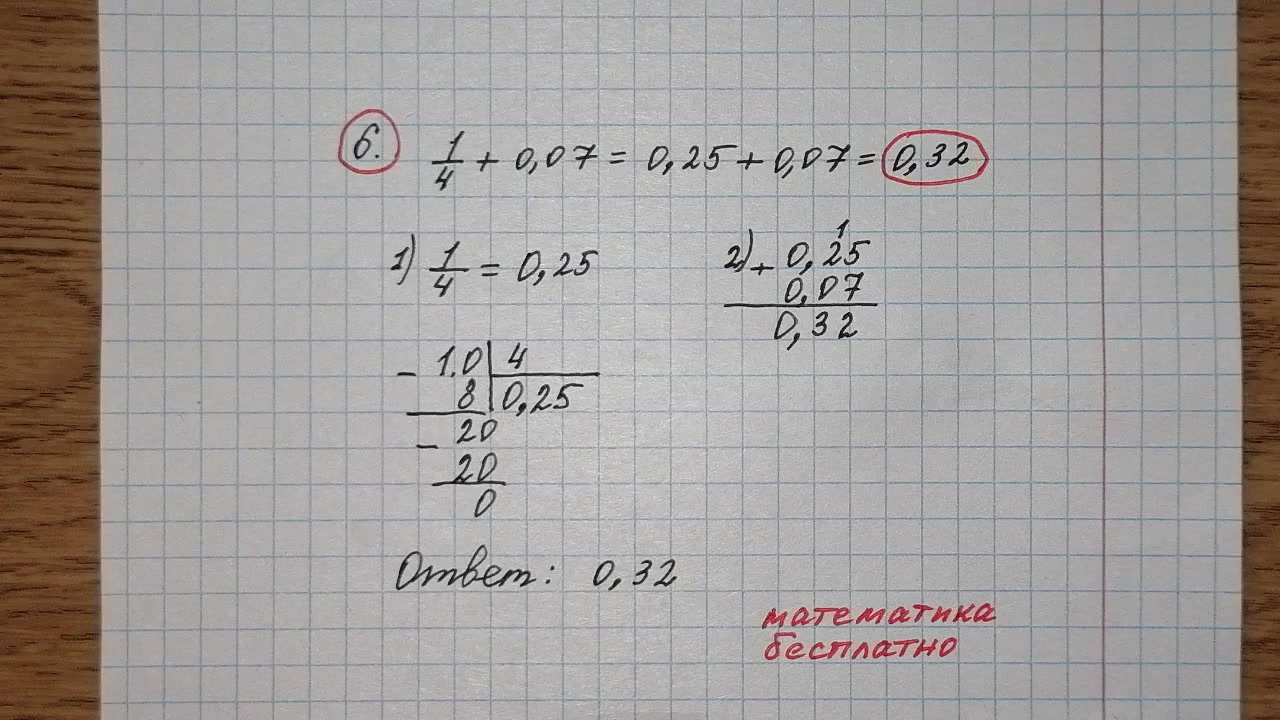 6. 1/4 + 0,07 = 0,25 + 0,07 = 0,32
1) 1/4 = 0,25
1.0 | 4
- 8 | 0,25
20
- 20
0
2) 1
+ 0,25
0,07
0,32
Ответ: 0,32
математика
бесплатно